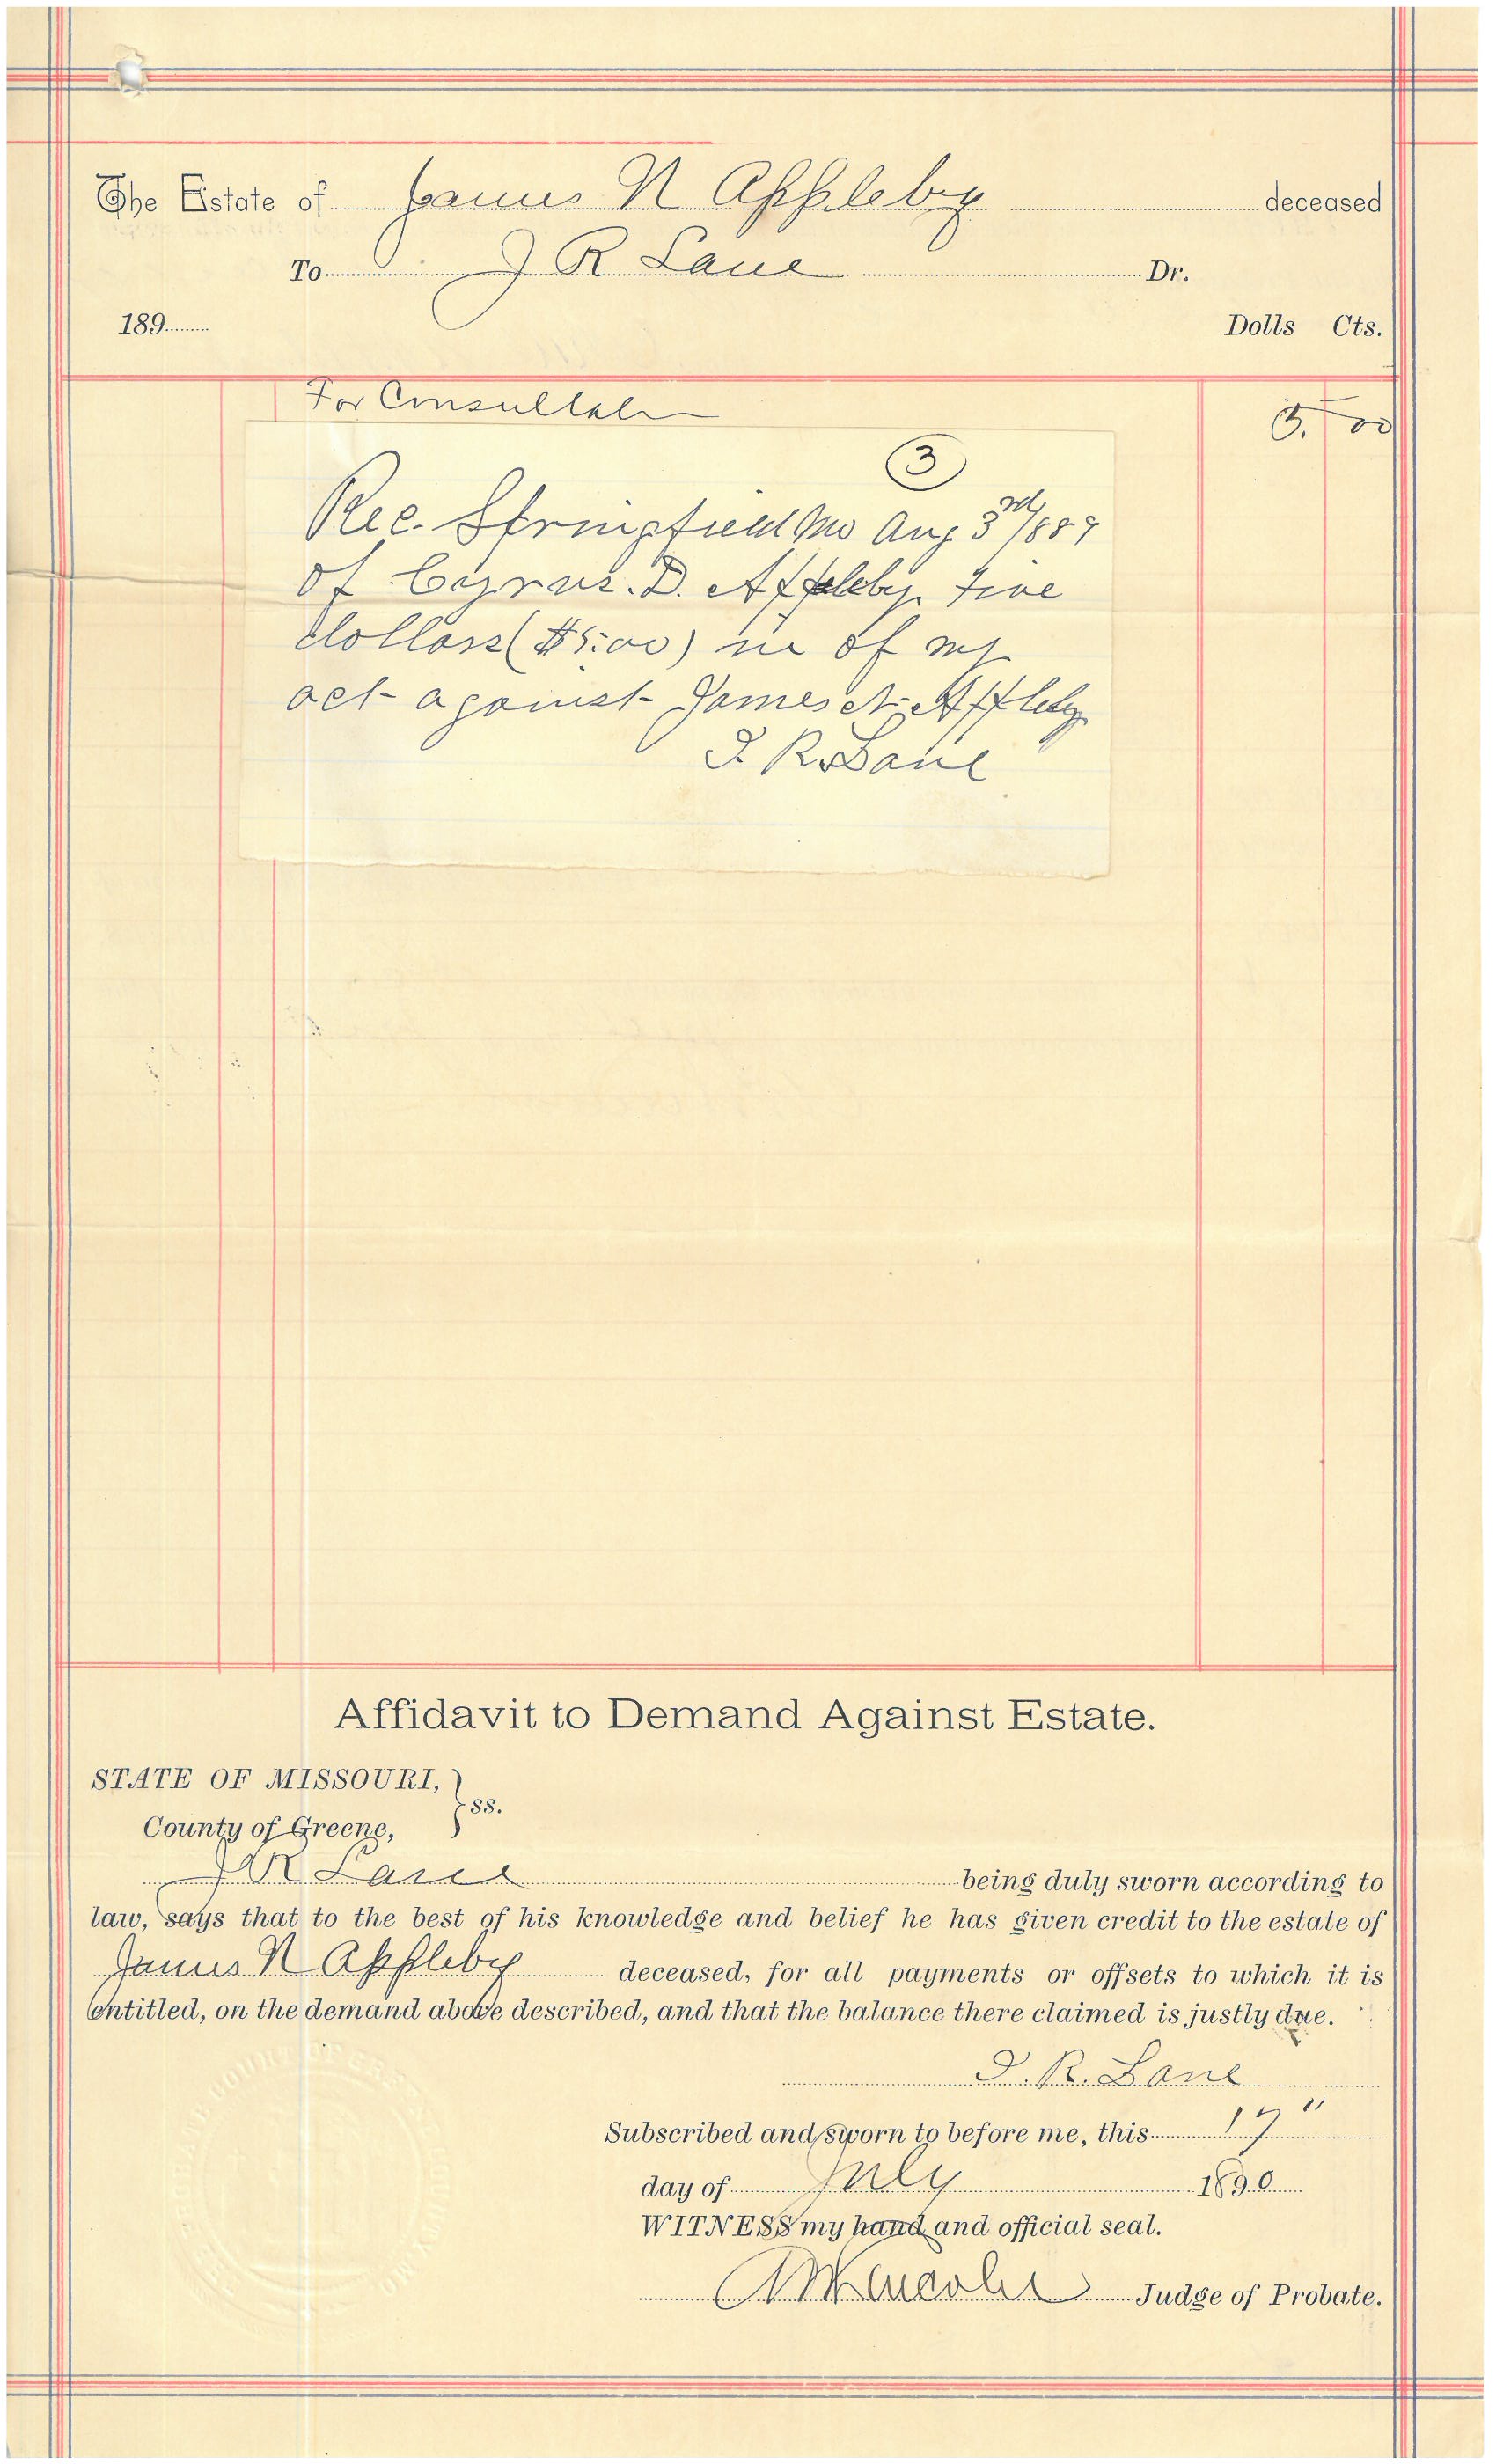 The Estate of James N Appleby deceased
To J R Lane Dr.
189 Dolls Cts.
For Consultation 5.00
3
Rec. Springfield Mo Aug 3rd/1889
of Cyrus. D. Appleby five
dollars ($5.00) in of my
act against James N. Appleby
J. R. Lane
Affidavit to Demand Against Estate.
STATE OF MISSOURI,
County of Greene, } ss.
J R Lane being duly sworn according to
law, says that to the best of his knowledge and belief he has given credit to the estate of
James N Appleby deceased, for all payments or offsets to which it is
entitled, on the demand above described, and that the balance there claimed is justly due.
J. R. Lane
Subscribed and sworn to before me, this 17"
day of July 1890
WITNESS my hand and official seal.
Judge of Probate.